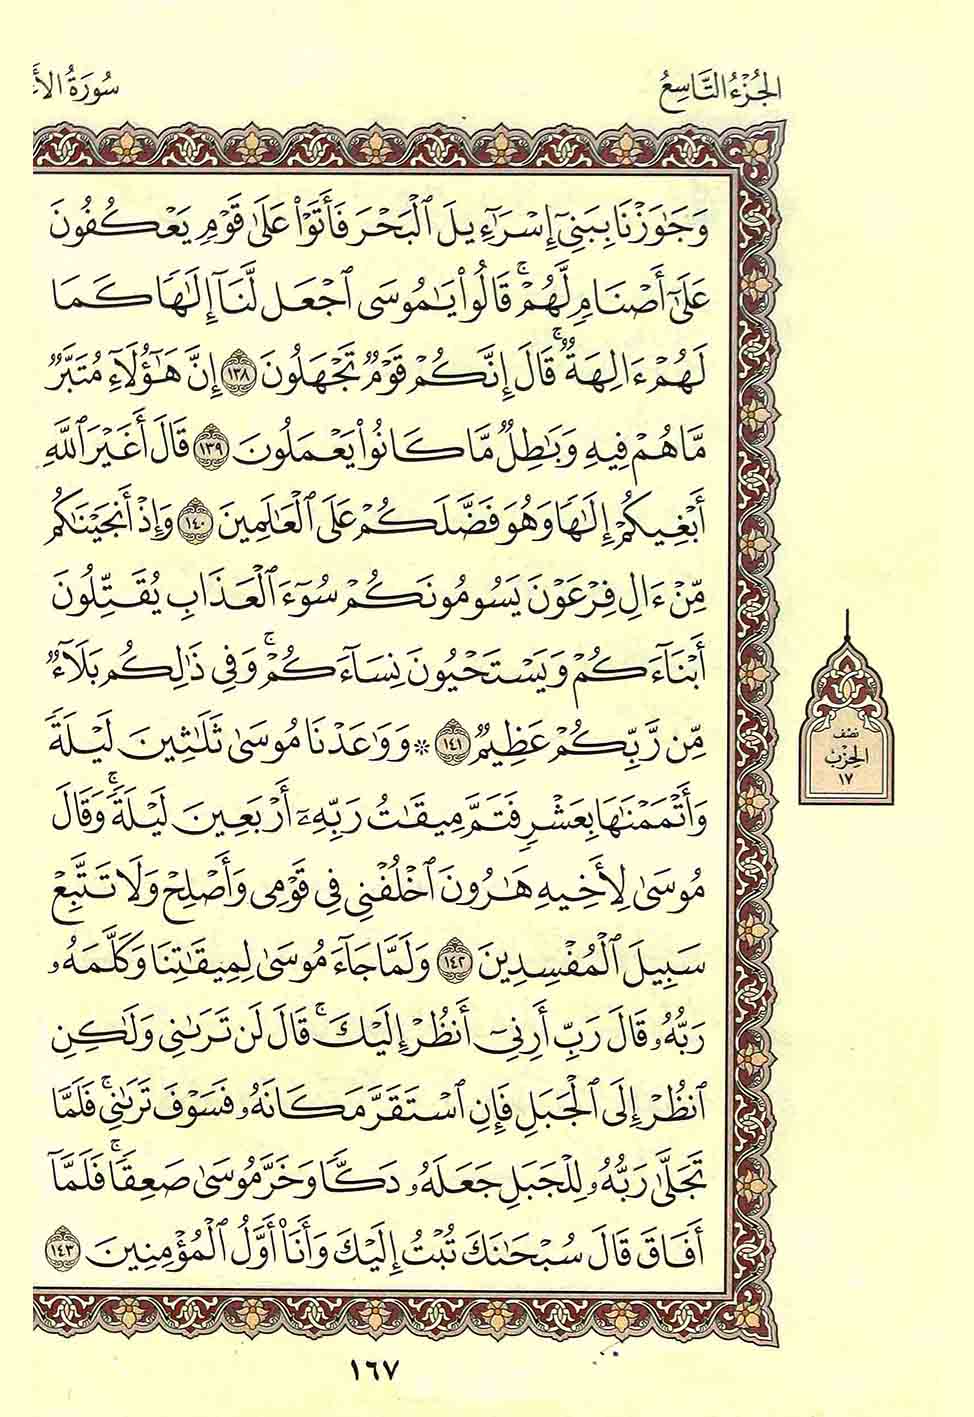 الجزء التاسع
سورة الأ
وَجَٰوَزْنَا بِبَنِىٓ إِسْرَٰٓءِيلَ ٱلْبَحْرَ فَأَتَوْا۟ عَلَىٰ قَوْمٍ يَعْكُفُونَ
عَلَىٰٓ أَصْنَامٍ لَّهُمْ ۚ قَالُوا۟ يَٰمُوسَى ٱجْعَل لَّنَآ إِلَٰهًا كَمَا
لَهُمْ ءَالِهَةٌ ۚ قَالَ إِنَّكُمْ قَوْمٌ تَجْهَلُونَ ١٣٨ إِنَّ هَٰٓؤُلَآءِ مُتَبَّرٌ
مَّا هُمْ فِيهِ وَبَٰطِلٌ مَّا كَانُوا۟ يَعْمَلُونَ ١٣٩ قَالَ أَغَيْرَ ٱللَّهِ
أَبْغِيكُمْ إِلَٰهًا وَهُوَ فَضَّلَكُمْ عَلَى ٱلْعَٰلَمِينَ ١٤٠ وَإِذْ أَنجَيْنَٰكُم
مِّنْ ءَالِ فِرْعَوْنَ يَسُومُونَكُمْ سُوٓءَ ٱلْعَذَابِ يُقَتِّلُونَ
أَبْنَآءَكُمْ وَيَسْتَحْيُونَ نِسَآءَكُمْ ۚ وَفِى ذَٰلِكُم بَلَآءٌ
مِّن رَّبِّكُمْ عَظِيمٌ ١٤١ * وَوَٰعَدْنَا مُوسَىٰ ثَلَٰثِينَ لَيْلَةً
وَأَتْمَمْنَٰهَا بِعَشْرٍ فَتَمَّ مِيقَٰتُ رَبِّهِۦٓ أَرْبَعِينَ لَيْلَةً ۚ وَقَالَ
مُوسَىٰ لِأَخِيهِ هَٰرُونَ ٱخْلُفْنِى فِى قَوْمِى وَأَصْلِحْ وَلَا تَتَّبِعْ
سَبِيلَ ٱلْمُفْسِدِينَ ١٤٢ وَلَمَّا جَآءَ مُوسَىٰ لِمِيقَٰتِنَا وَكَلَّمَهُۥ
رَبُّهُۥ قَالَ رَبِّ أَرِنِىٓ أَنظُرْ إِلَيْكَ ۚ قَالَ لَن تَرَىٰنِى وَلَٰكِنِ
ٱنظُرْ إِلَى ٱلْجَبَلِ فَإِنِ ٱسْتَقَرَّ مَكَانَهُۥ فَسَوْفَ تَرَىٰنِى ۚ فَلَمَّا
تَجَلَّىٰ رَبُّهُۥ لِلْجَبَلِ جَعَلَهُۥ دَكًّا وَخَرَّ مُوسَىٰ صَعِقًا ۚ فَلَمَّآ
أَفَاقَ قَالَ سُبْحَٰنَكَ تُبْتُ إِلَيْكَ وَأَنَا۠ أَوَّلُ ٱلْمُؤْمِنِينَ ١٤٣
نصف
الحزب
١٧
١٦٧